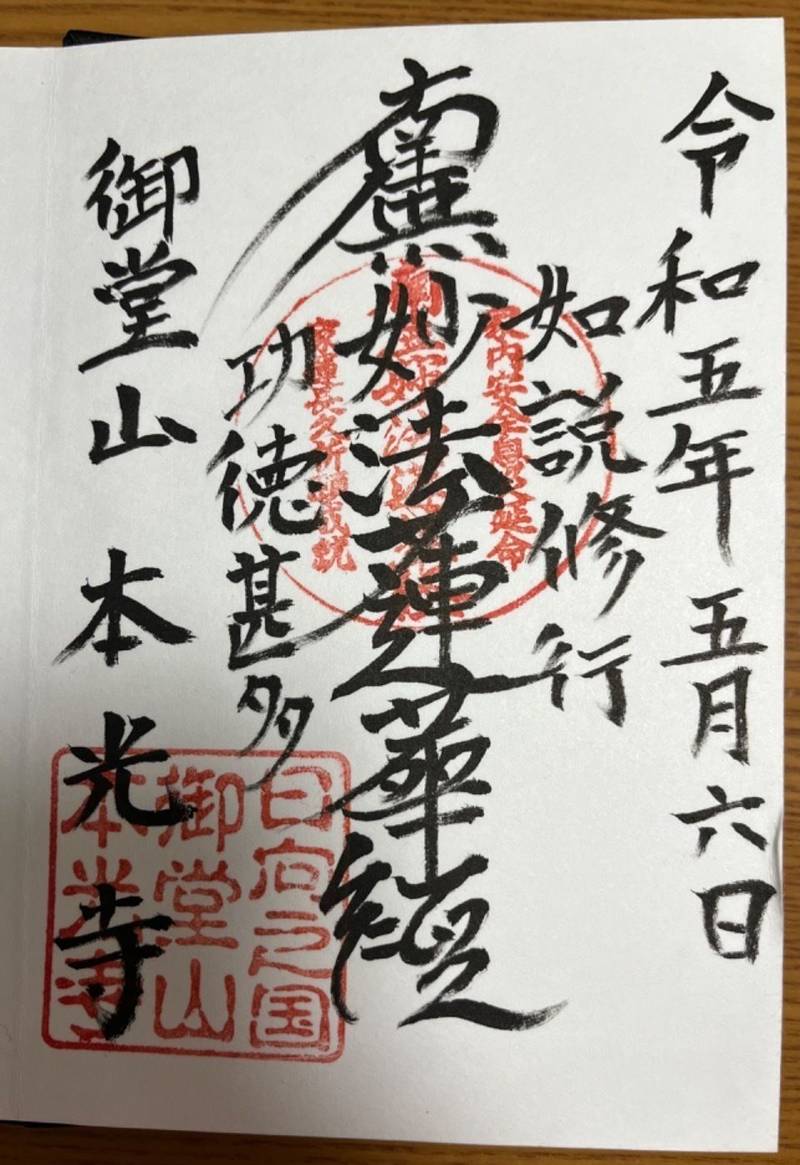 令和五年五月六日
如説修行
南無妙法蓮華経
功徳甚多
御堂山 本光寺
家内安全息災延命
日向之国
御堂山
本光寺